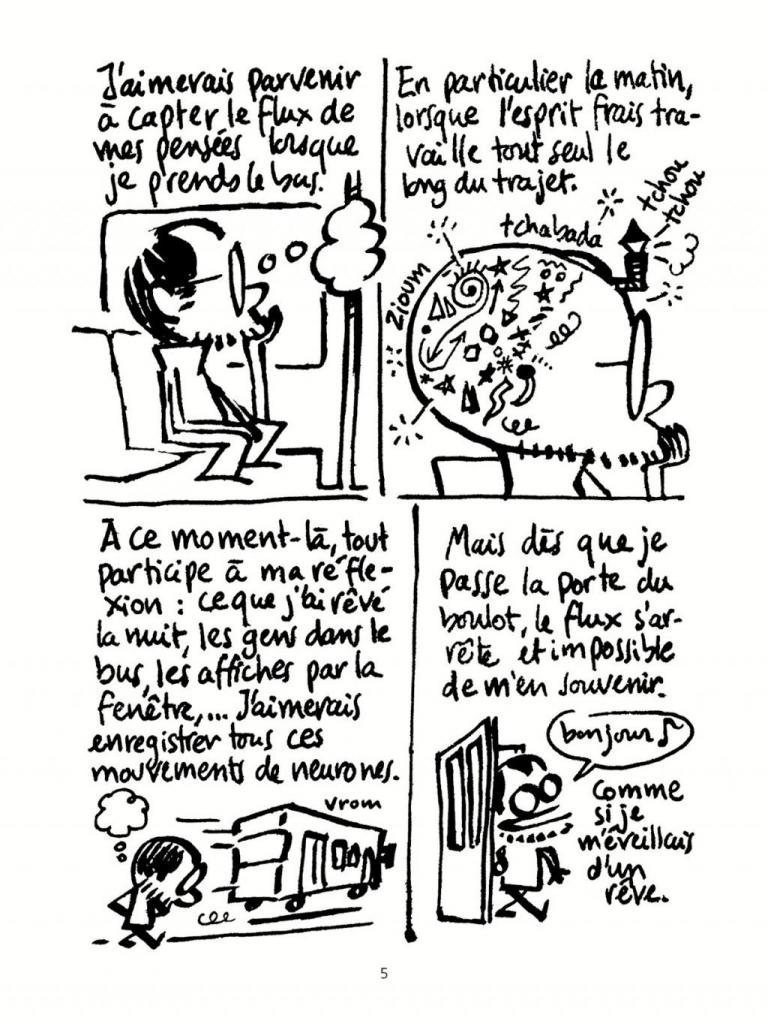 J'aimerais parvenir
à capter le flux de
mes pensées lorsque
je prends le bus.
En particulier le matin,
lorsque l'esprit frais tra-
vaille tout seul le
long du trajet.
tchou
tchou
tchabada
Zioum
A ce moment-là, tout
participe à ma réfle-
xion : ce que j'ai rêvé
la nuit, les gens dans le
bus, les affiches par la
fenêtre,... J'aimerais
enregistrer tous ces
mouvements de neurones.
vrom
Mais dès que je
passe la porte du
boulot, le flux s'ar-
rête et impossible
de m'en souvenir.
bonjour♪
Comme
si je
m'éveillais
d'un
rêve.
5